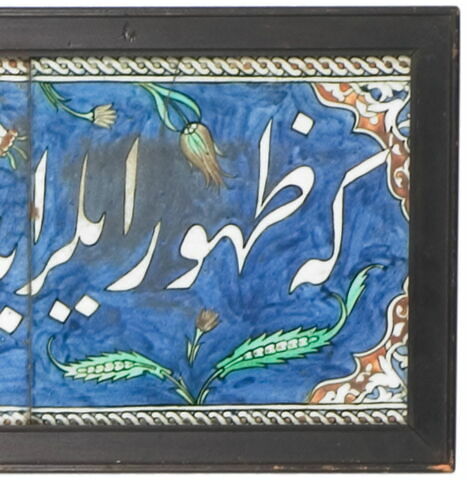 كه ظهور ايلر